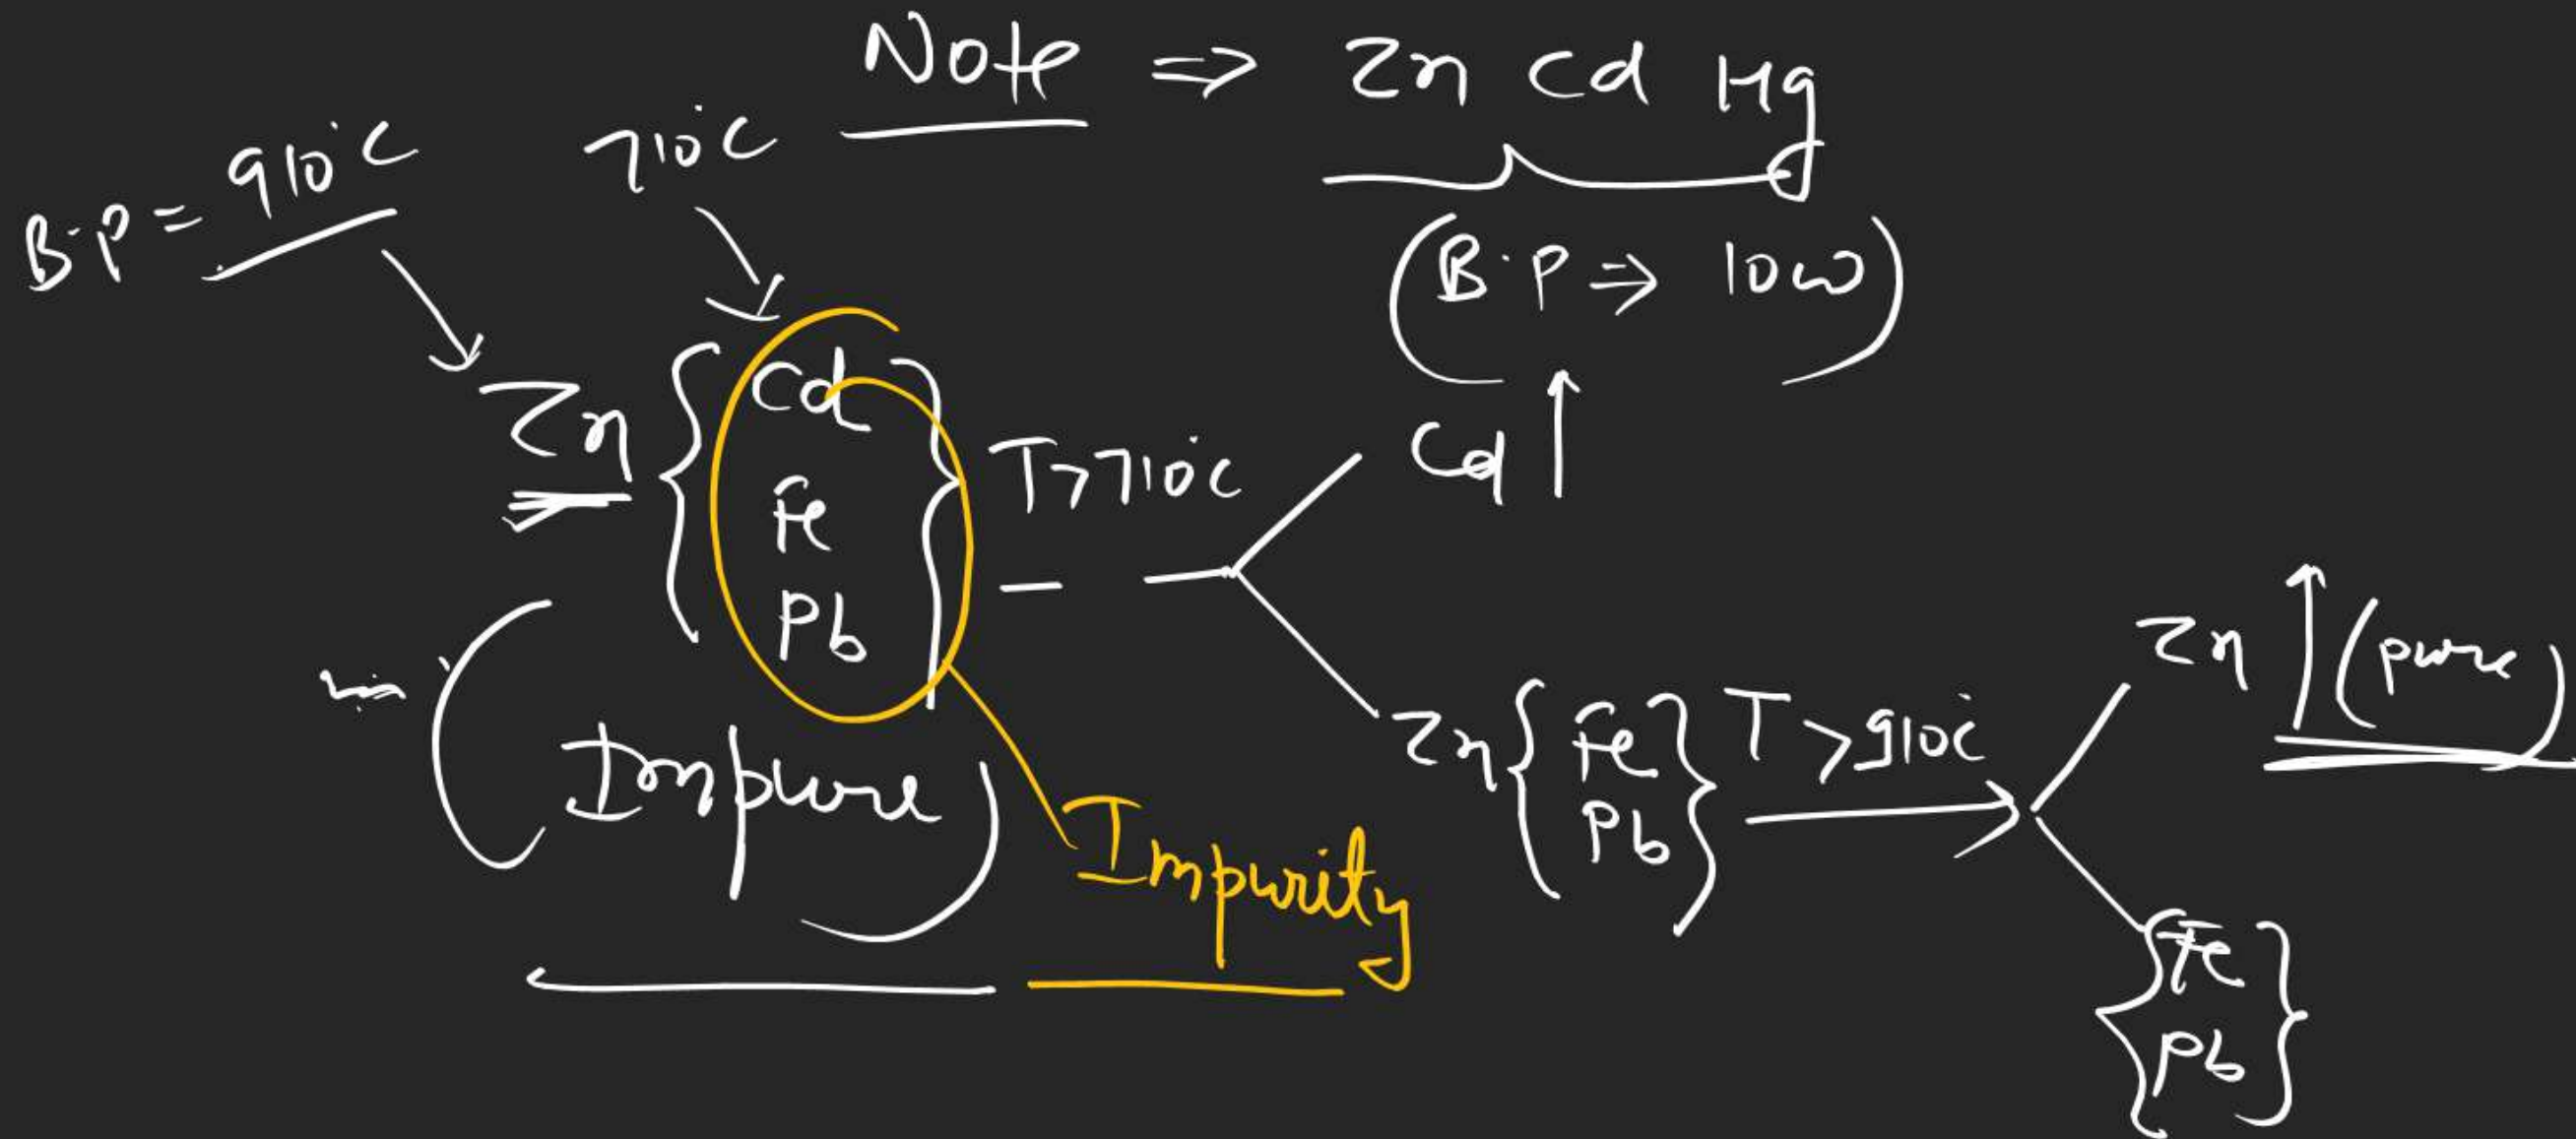 Note ⇒ Zn Cd Hg
(B.P ⇒ low)
B.P = 910°C
710°C
Zn { Cd Fe Pb }
(Impure)
Impurity
T>710°C
Cd ↑
Zn { Fe Pb }
T > 910°C
Zn ↑ (pure)
{ Fe Pb }